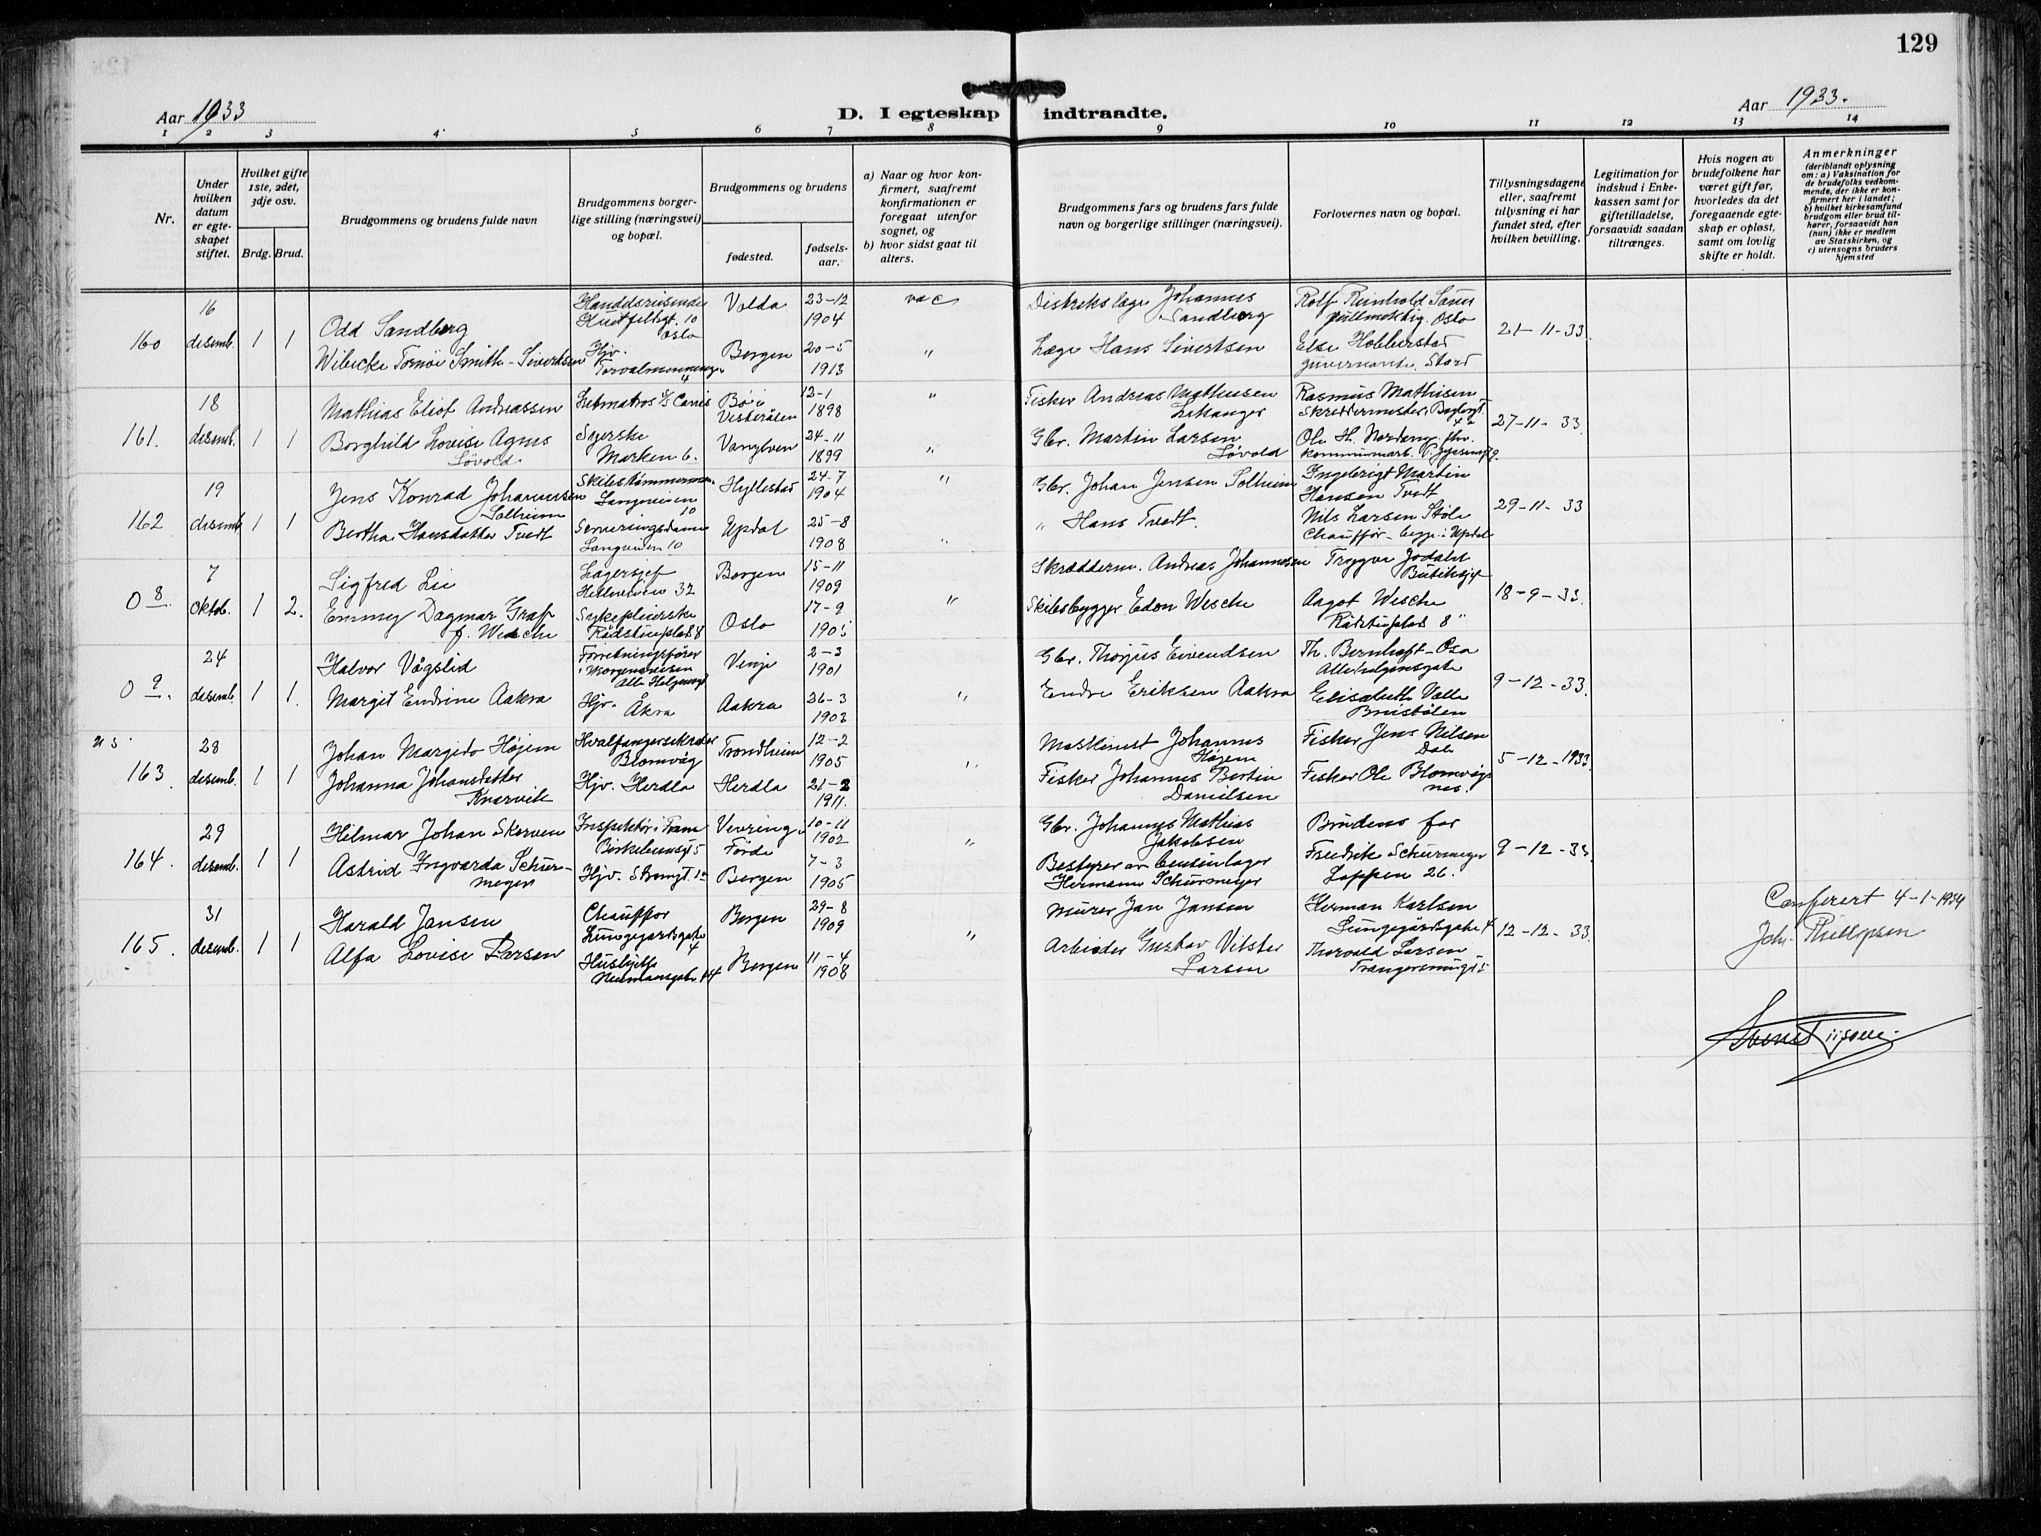 129
Aar 1933
D. I egteskap indtraadte.
Aar 1933.
1 2 3 4 5 6 7 8 9 10 11 12 13 14
Nr.
Under hvilken datum er egte- skapet stiftet.
Hvilket gifte 1ste, 2det, 3dje osv.
Brdg. Brud.
Brudgommens og brudens fulde navn
Brudgommens borger- lige stilling (næringsvei) og bopæl.
Brudgommens og brudens
fødested.
fødsels- aar.
a) Naar og hvor kon- firmert, saafremt konfirmationen er foregaat utenfor sognet, og
b) hvor sidst gaat til alters.
Brudgommens fars og brudens fars fulde navn og borgerlige stillinger (næringsvei).
Forlovernes navn og bopæl.
Tillysningsdagene eller, saafremt tillysning ei har fundet sted, efter hvilken bevilling.
Legitimation for indskud i Enke- kassen samt for giftetilladelse, forsaavidt saadan tiltrænges.
Hvis nogen av brudefolkene har været gift før, hvorledes da det foregaaende egte- skap er opløst, samt om lovlig skifte er holdt.
Anmerkninger
(deriblandt oplysning om: a) Vaksination for de brudefolks vedkom- mende, der ikke er kon- firmert her i landet; b) hvilket kirkesamfund brudgom eller brud til- hører, forsaavidt han (hun) ikke er medlem av Statskirken, og c) utensogns bruders hjemsted
160 16 desemb. 1 1
Odd Sandberg
Handelsreisende
Huitfeldtsgt. 10
Oslo
Volda 23-12 1904
vac
Distrikslæge Johannes Sandberg
Rolf Reinhold
fullmektig Oslo
21-11-33.
Wibecke Tornøe Smith-Sivertsen
Hjv.
Torvalmenningen 4
Bergen 20-5 1913 "
Læge Hans Sivertsen
Else Hobberstad
guvernante. Stord
161. 18 desemb. 1 1
Mathias Eliot Andreassen
Letmatros
Bø i Vesterålen 12-1 1898 "
Fisker Andreas Mathiesen
Rasmus Mathisen
Skreddermester
27-11-33.
Borghild Lovise Agnes Løvold
Syerske
Marken 6.
Vanylven 24-11 1899 "
Gbr. Martin Larsen Løvold
162 19 desemb 1 1
Jens Konrad Johannessen Solheim
Skibstømmermann
Langeveien 10
Hyllestad 24-7 1904 "
Gbr. Johan Jensen Solheim
Ingebrigt Martin
Hansen Tvedt
29-11-33
Bertha Hansdatter Tvedt
Serveringsdame
Langveien 10
Updal 25-8 1908 "
" Hans Tvedt.
Nils Larsen Støle
Chauffør
0 8. 7 Oktob. 1 2.
Sigfred Lie
Lagersjef
Helleveien 32
Bergen 15-11 1909
Skrædderm. Andreas Johannesen
Trygve Jodahl
Butiksjef
18-9-33.
Emmy Dagmar Graf
f. Wesche
Sykepleierske
Rådstueplads 8
Oslo 17-9 1905 "
Skibsbygger Edon Wesche
Aagot Wesche
Rådstuplads 8 "
0 9. 24 desemb. 1 1.
Halvor Vågslid
Forretningsfører
i Morgenavisen
Alle Helgensgt
Vinje 2-3 1901
Gbr. Thorjus Eivendsen
Th. Bernhoft-Osa
Allehelgensgate
9-12-33.
Margit Endrine Aakra
Hjv. Åkra
Aakra 26-3 1903 "
Endre Eriksen Aakra
Elisabeth Valle
Breistølen
163. 28 desemb. 1 1
Johan Margido Højem
Blomvåg
Trondheim 12-2 1905
Maskinist Johannes Højem
Fisker Jens Nilsen Dale
5-12-1933.
Johanna Johansdatter Knarvik
Hjv. Herdla
Herdla 21-2 1911. "
Fisker Johannes Bertin Danielsen
Fisker Ole Blomvåg- nes.
164. 29 desemb. 1 1
Hilmar Johan Skorven
Inspektør i Fram
Birkebeinersgt 5
Vevring i Førde 10-11 1902 "
Gbr. Johannes Mathias Jakobsen
Brudens far
9-12-33.
Astrid Ingvarda Schur- meyer
Hjv. Strangt. 10
Bergen 7-3 1905
Bestyrer av bensinlager
Hermann Schurmeyer
Fredrik Schurmeyer
Loppen 26.
165. 31 desemb. 1 1
Harald Jansen
Chauffør
Lungegårdsgate 4
Bergen 29-8 1909 "
Murer Jan Jansen
Herman Karlsen
Lungegårdsgate 4
12-12-33.
Alfa Lovise Larsen
Hushjelp
Neumannsgate 44
Bergen 11-4 1908
Arbeider Gustav Larsen
Thorvald Larsen
Conferert 4-1-1934
Joh. Phillipsen